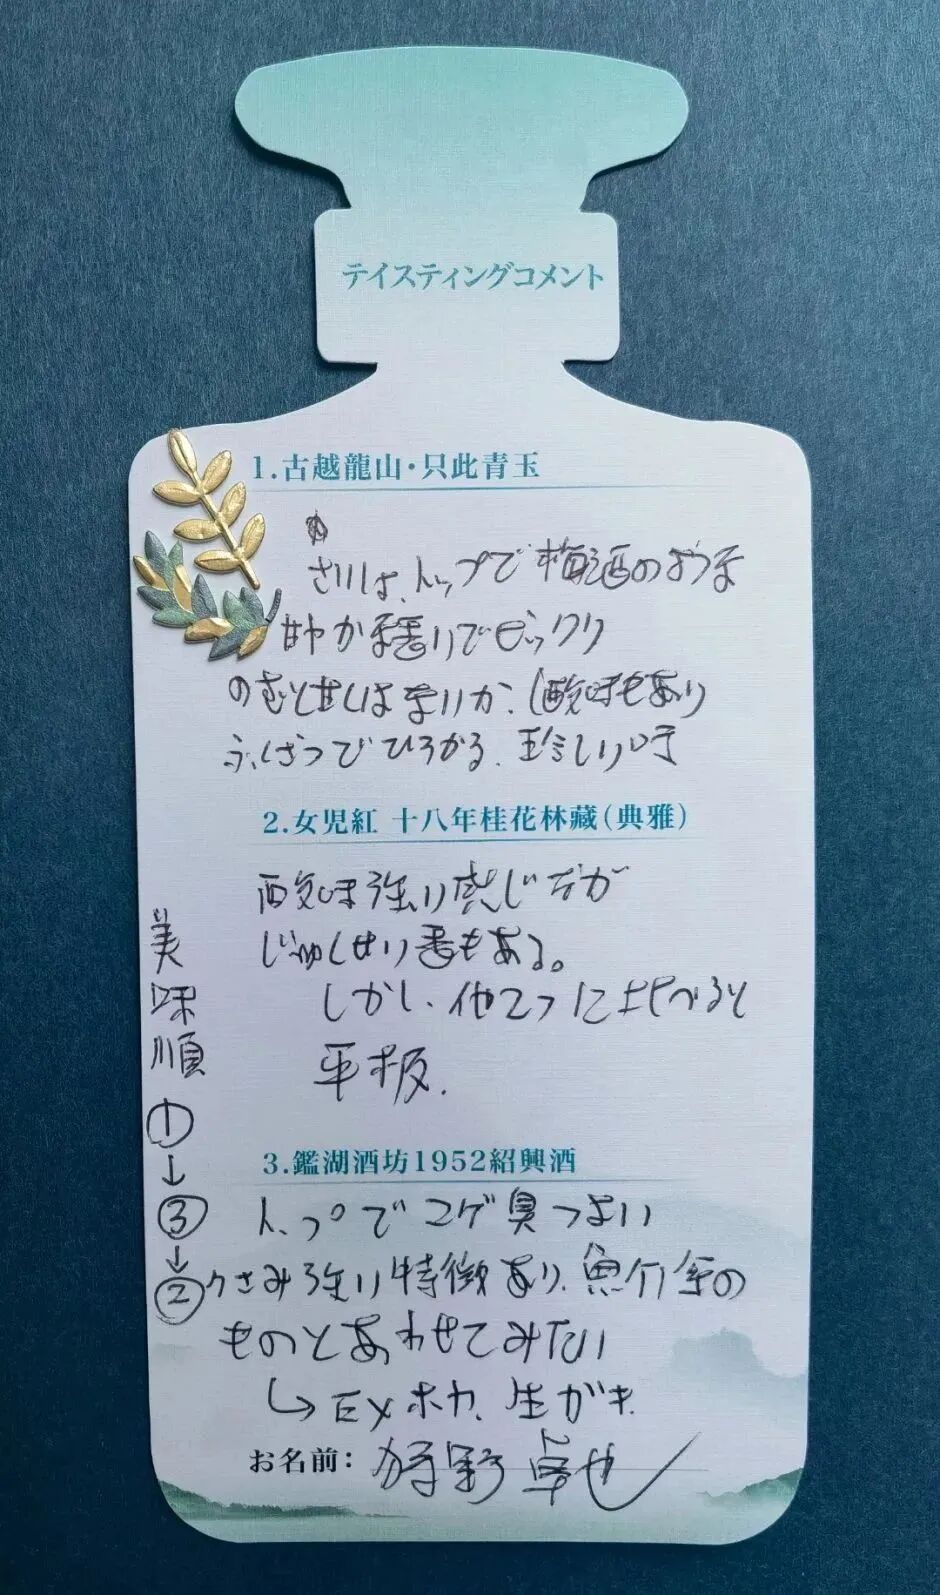 テイスティングコメント
1.古越龍山・只此青玉
は、トップで梅酒のような
甘やか香りでビックリ
のむと甘くはないが、酸味もあり
ひろがる、珍しい味
2.女児紅 十八年桂花林藏(典雅)
酸味強い感じだが
じゅくせい香もある。
しかし、他2つに比べると
平板.
3.鑑湖酒坊1952紹興酒
トップでコゲ臭つよい
くさみ強い特徴あり、魚介系の
ものとあわせてみたい
↳ EX ホヤ、生ガキ
お名前: 狩野卓也
美味順
①
↓
③
↓
②